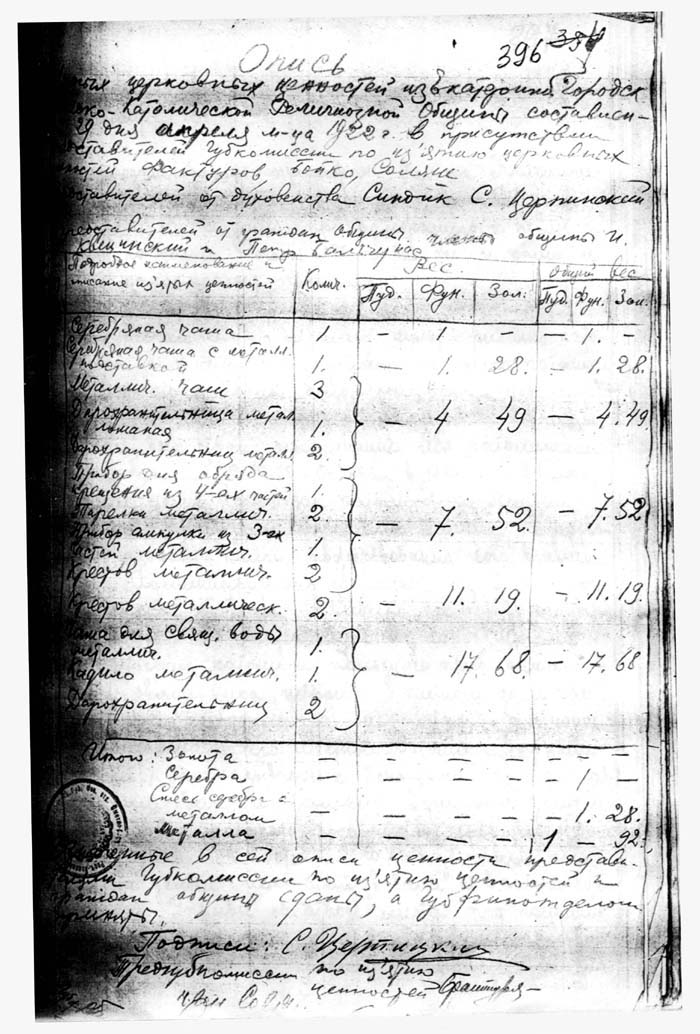 396
Опись
церковных ценностей Городск
Католической Религиозной Общины составлен-
29 дня апреля м-ца 1922 г. в присутствии
Губкомиссии по из'ятию церковных
Бойко, Соляни
от духовенства Синдик С.
от граждан общины, общины И.
и Петр
Подробное наименование и
описание из'ятых ценностей Колич. Вес Общий вес
Пуд. Фун. Зол. Пуд. Фун. Зол.
Серебряная чаша 1. — 1 — — 1. —
Серебряная чаша с металл.
подставкой 1. — 1. 28. — 1. 28.
Металлич. чаш 3
Дарохранительница метал.
1. — 4 49 — 4.49
Дарохранительниц метал. 2.
Прибор для обряда
крещения из 4-ех частей 1.
Тарелки металлич. 2. — 7. 52. — 7.52
Прибор ампулки из 3-ех
частей металлич. 1.
Крестов металлич. 2
Крестов металлическ. 2. — 11. 19. — 11.19.
Чаша для свящ. воды
металлич. 1.
Кадило металлич. 1. — 17. 68 — 17.68
Дарохранительниц 2
Итого: Золота — — — — — —
Серебра — — — — 1 —
Смесь серебра с
металлом — — — — 1. 28.
Металла — — — 1 — 92.
в сей описи ценности представи-
Губкомиссии по из'ятию ценностей и
граждан общины сданы, а Губфинотделом
приняты.
Подписи: С.
Предгубкомиссии по из'ятию
ценностей